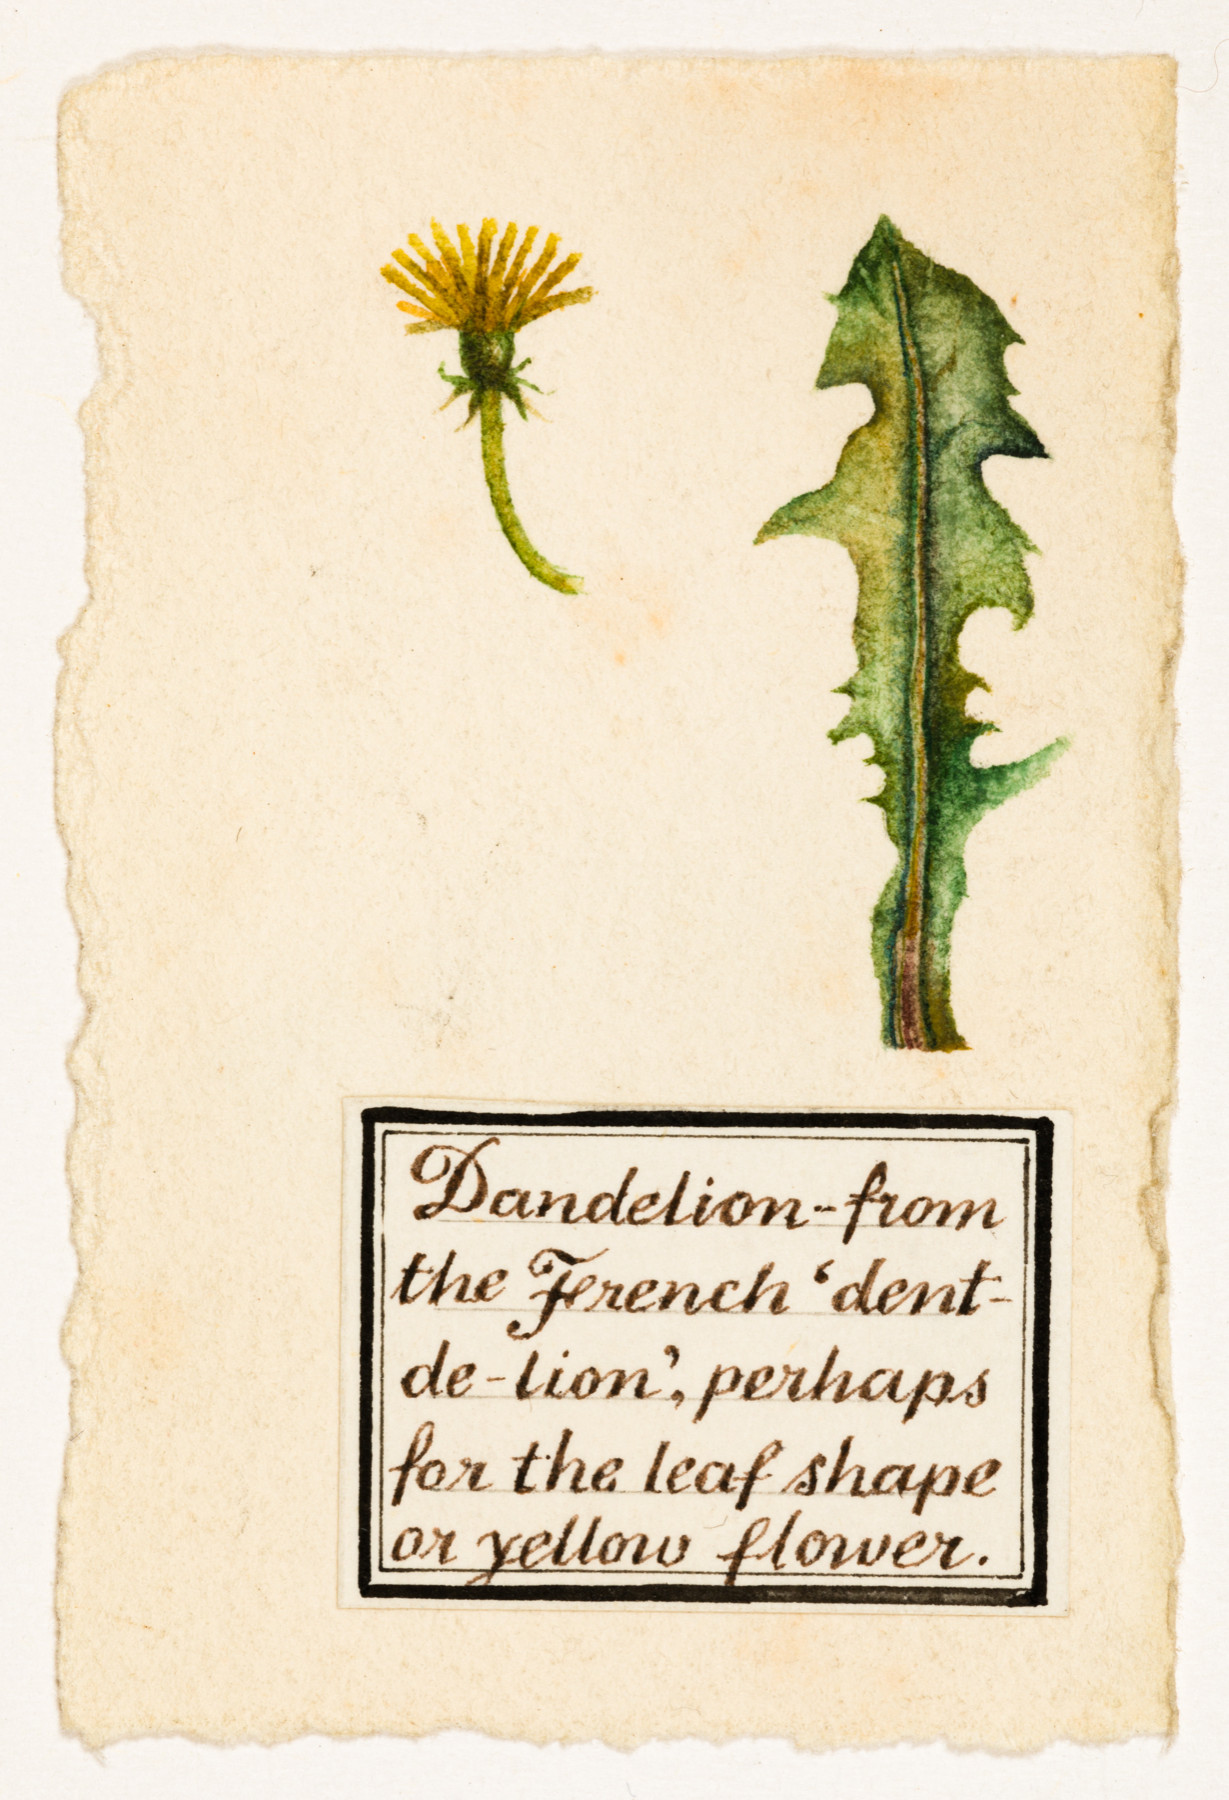 Dandelion - from
the French ‘dent-
de-lion’, perhaps
for the leaf shape
or yellow flower.